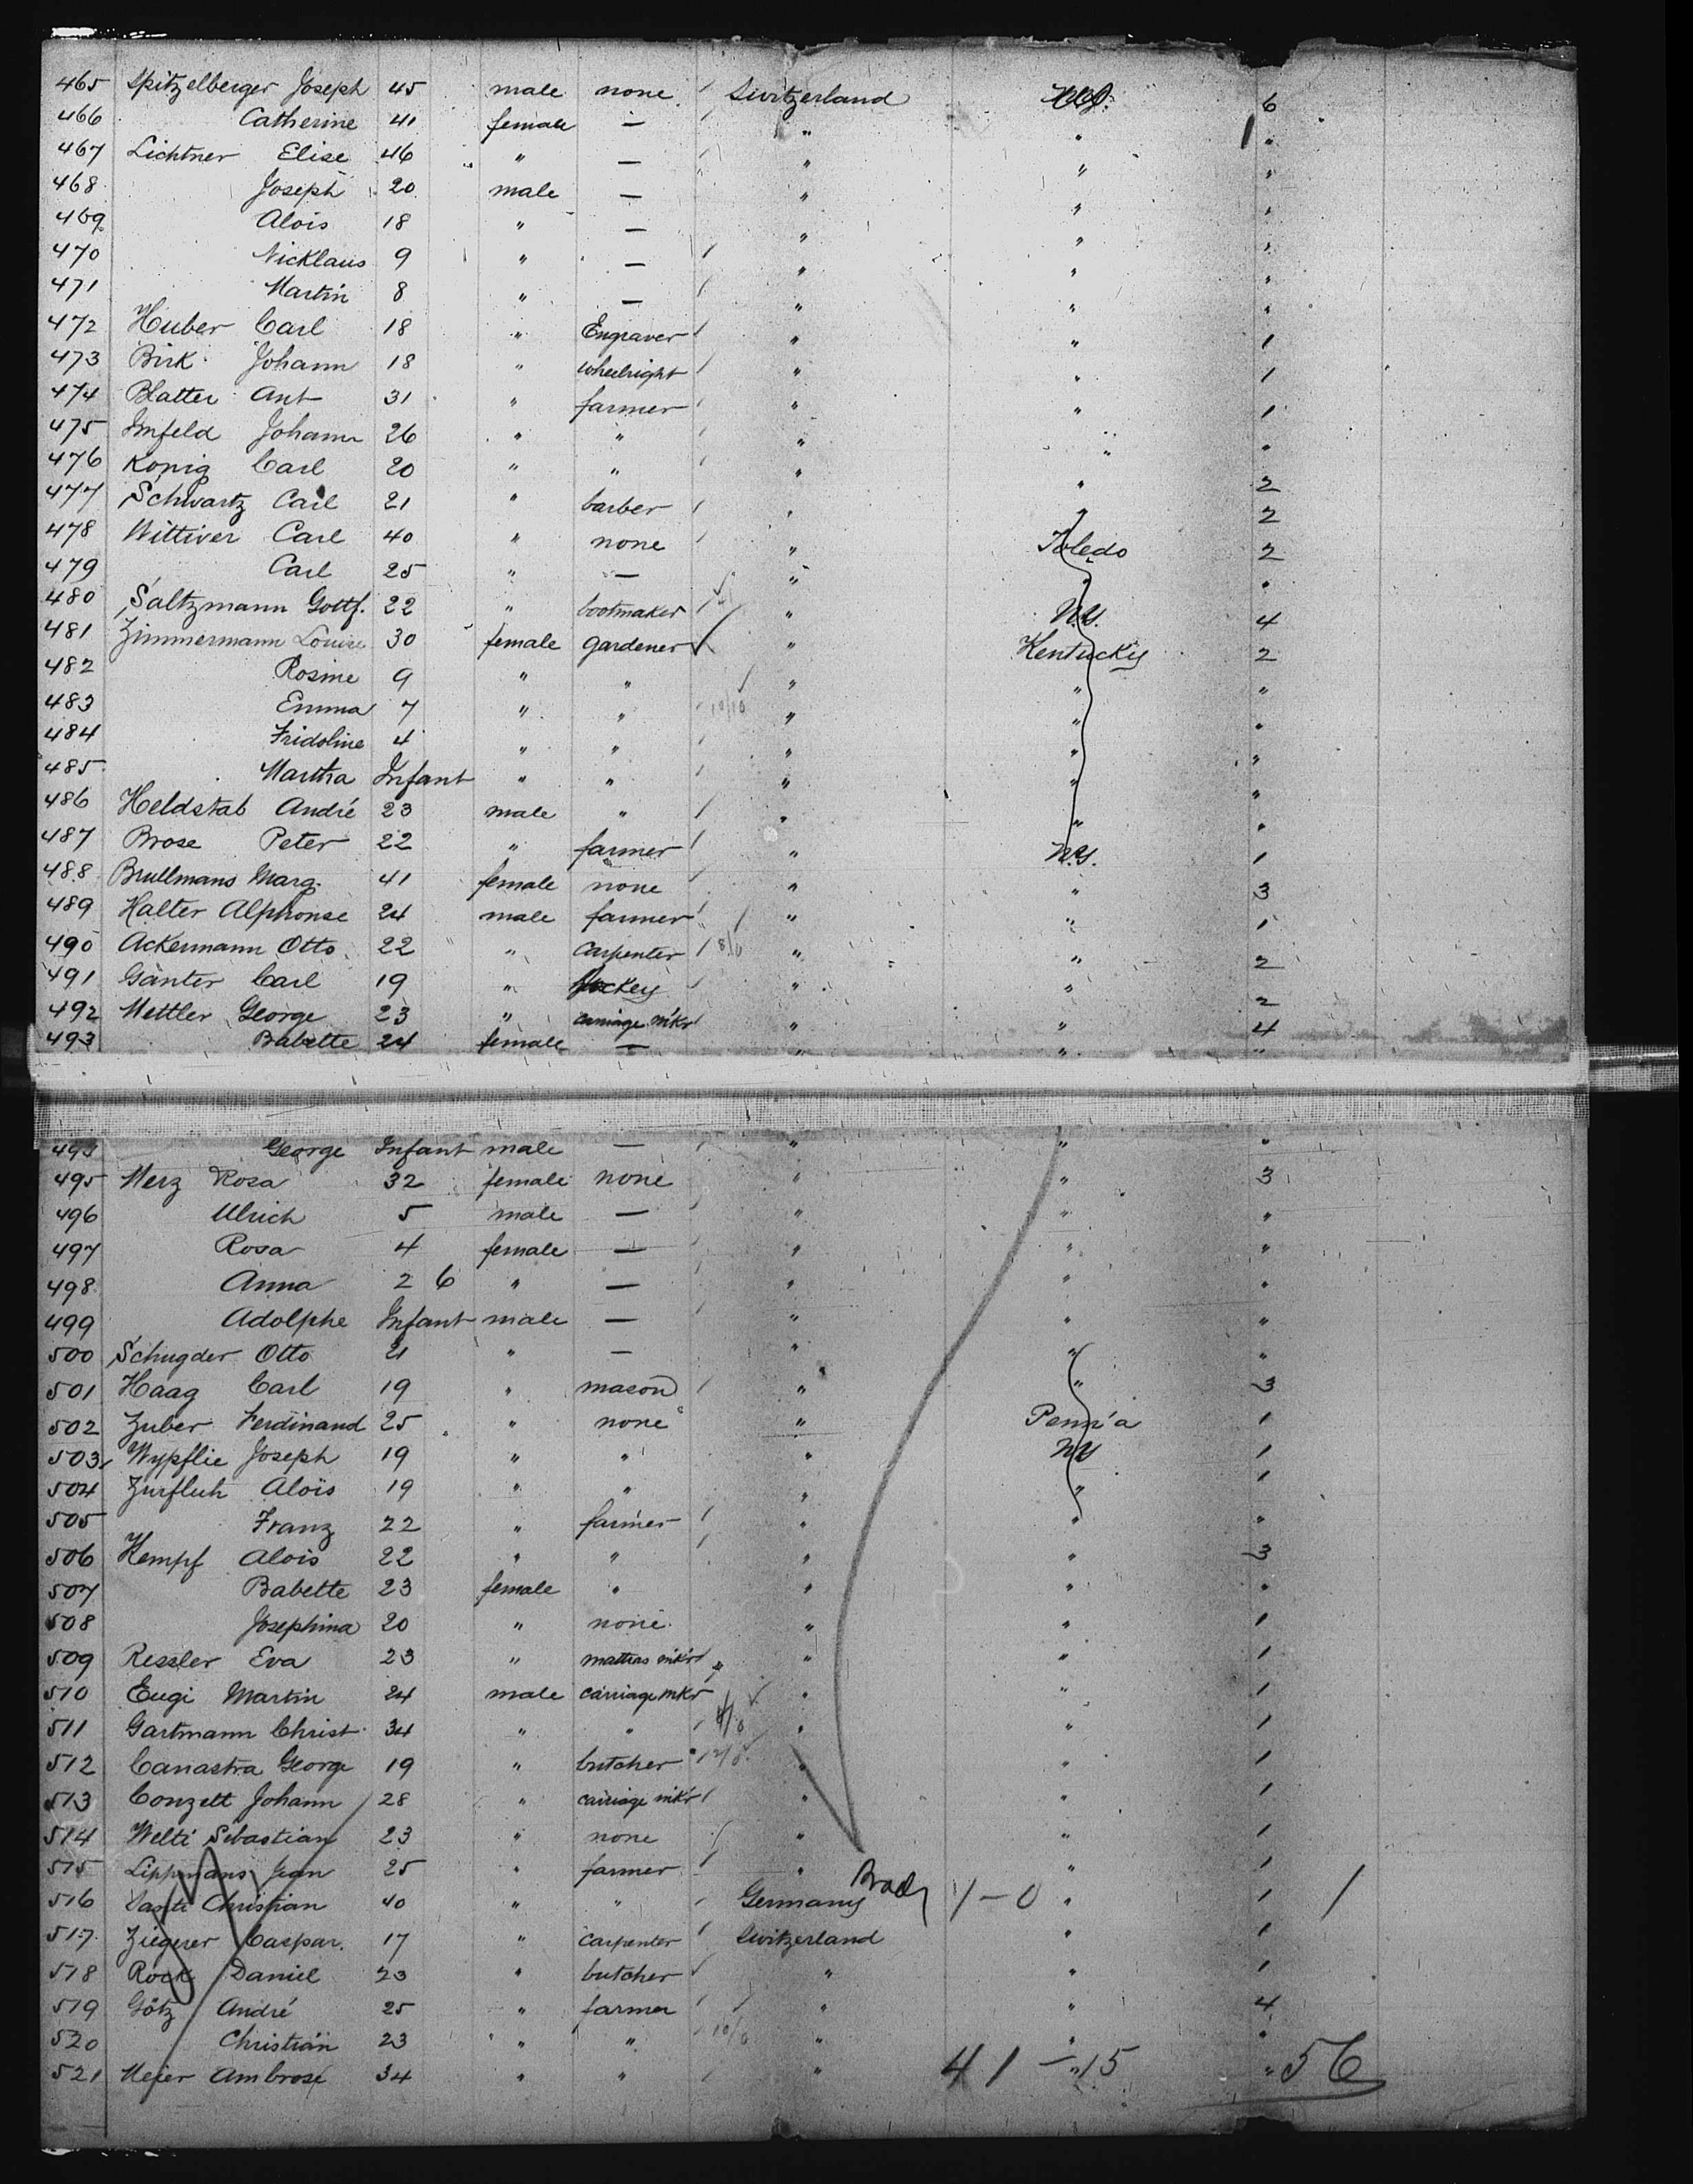 465 Spitzelberger Joseph 45 male none Switzerland 6
466 Catherine 41 female — " " "
467 Lichtner Elise 46 " — " " "
468 Joseph 20 male — " " "
469 Alois 18 " — " " "
470 Nicklaus 9 " — " " "
471 Martin 8 " — " " "
472 Huber Carl 18 " Engraver " " 1
473 Birk Johann 18 " wheelright " " 1
474 Blatter Ant 31 " farmer " " 1
475 Imfeld Johann 26 " " " " "
476 König Carl 20 " " " " 2
477 Schwartz Carl 21 " barber " " 2
478 Wittiver Carl 40 " none " Toledo 2
479 Carl 25 " — " " "
480 Saltzmann Gottf. 22 " bootmaker " N.Y. 4
481 Zimmermann Louise 30 female gardener " Kentucky 2
482 Rosine 9 " " " " "
483 Emma 7 " " 10/10 " " "
484 Fridoline 4 " " " " "
485 Martha Infant " " " " "
486 Heldstab André 23 male " " " "
487 Brose Peter 22 " farmer " N.Y. 1
488 Brullmans Marg. 41 female none " " 3
489 Halter Alphonse 24 male farmer " " 1
490 Ackermann Otto 22 " carpenter " " 2
491 Gänter Carl 19 " Jockey " " 2
492 Mettler George 23 " carriage mkr " " 4
493 Babette 24 female — " " "
494 George Infant male — " " "
495 Merz Rosa 32 female none " " 3
496 Ulrich 5 male — " " "
497 Rosa 4 female — " " "
498 Anna 2 6 " — " " "
499 Adolphe Infant male — " " "
500 Schugder Otto 21 " — " " "
501 Haag Carl 19 " mason " " 3
502 Zuber Ferdinand 25 " none " Penn'a 1
503 Wypflie Joseph 19 " " " NY 1
504 Zurfluh Aloïs 19 " " " " 1
505 Franz 22 " farmer " " "
506 Kempf Alois 22 " " " " 3
507 Babette 23 female " " " "
508 Josephina 20 " none " " 1
509 Ressler Eva 23 " mattras mkr " " 1
510 Eugi Martin 24 male carriage mkr " " 1
511 Gartmann Christ 34 " " " " 1
512 Canastra George 19 " butcher " " 1
513 Conzett Johann 28 " carriage mkr " " 1
514 Welti Sebastian 23 " none " " 1
515 Lippmans Jean 25 " farmer " " 1
516 Christian 40 " " Germany Brady 1–0 " 1 1
517 Ziegerer Caspar. 17 " carpenter Switzerland " 1
518 Rock Daniel 23 " butcher " " 1
519 Götz André 25 " farmer " " 4
520 Christian 23 " " 10/0 " " "
521 Meier Ambrose 34 " " " 41 – 15 " 56